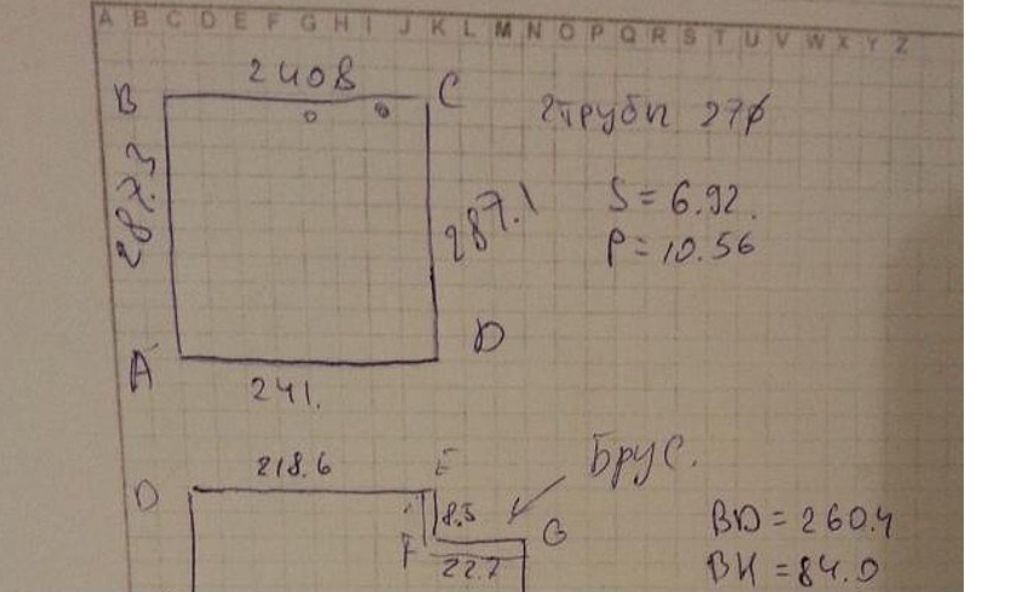 A B C D E F G H I J K L M N O P Q R S T U V W X Y Z
2408
B
C
2трубы 27ø
287.3
287.1
S = 6.92.
P = 10.56
A
D
241.
Брус.
218.6
E
D
8.5
G
BD = 260.4
F
22.7
BK = 84.0